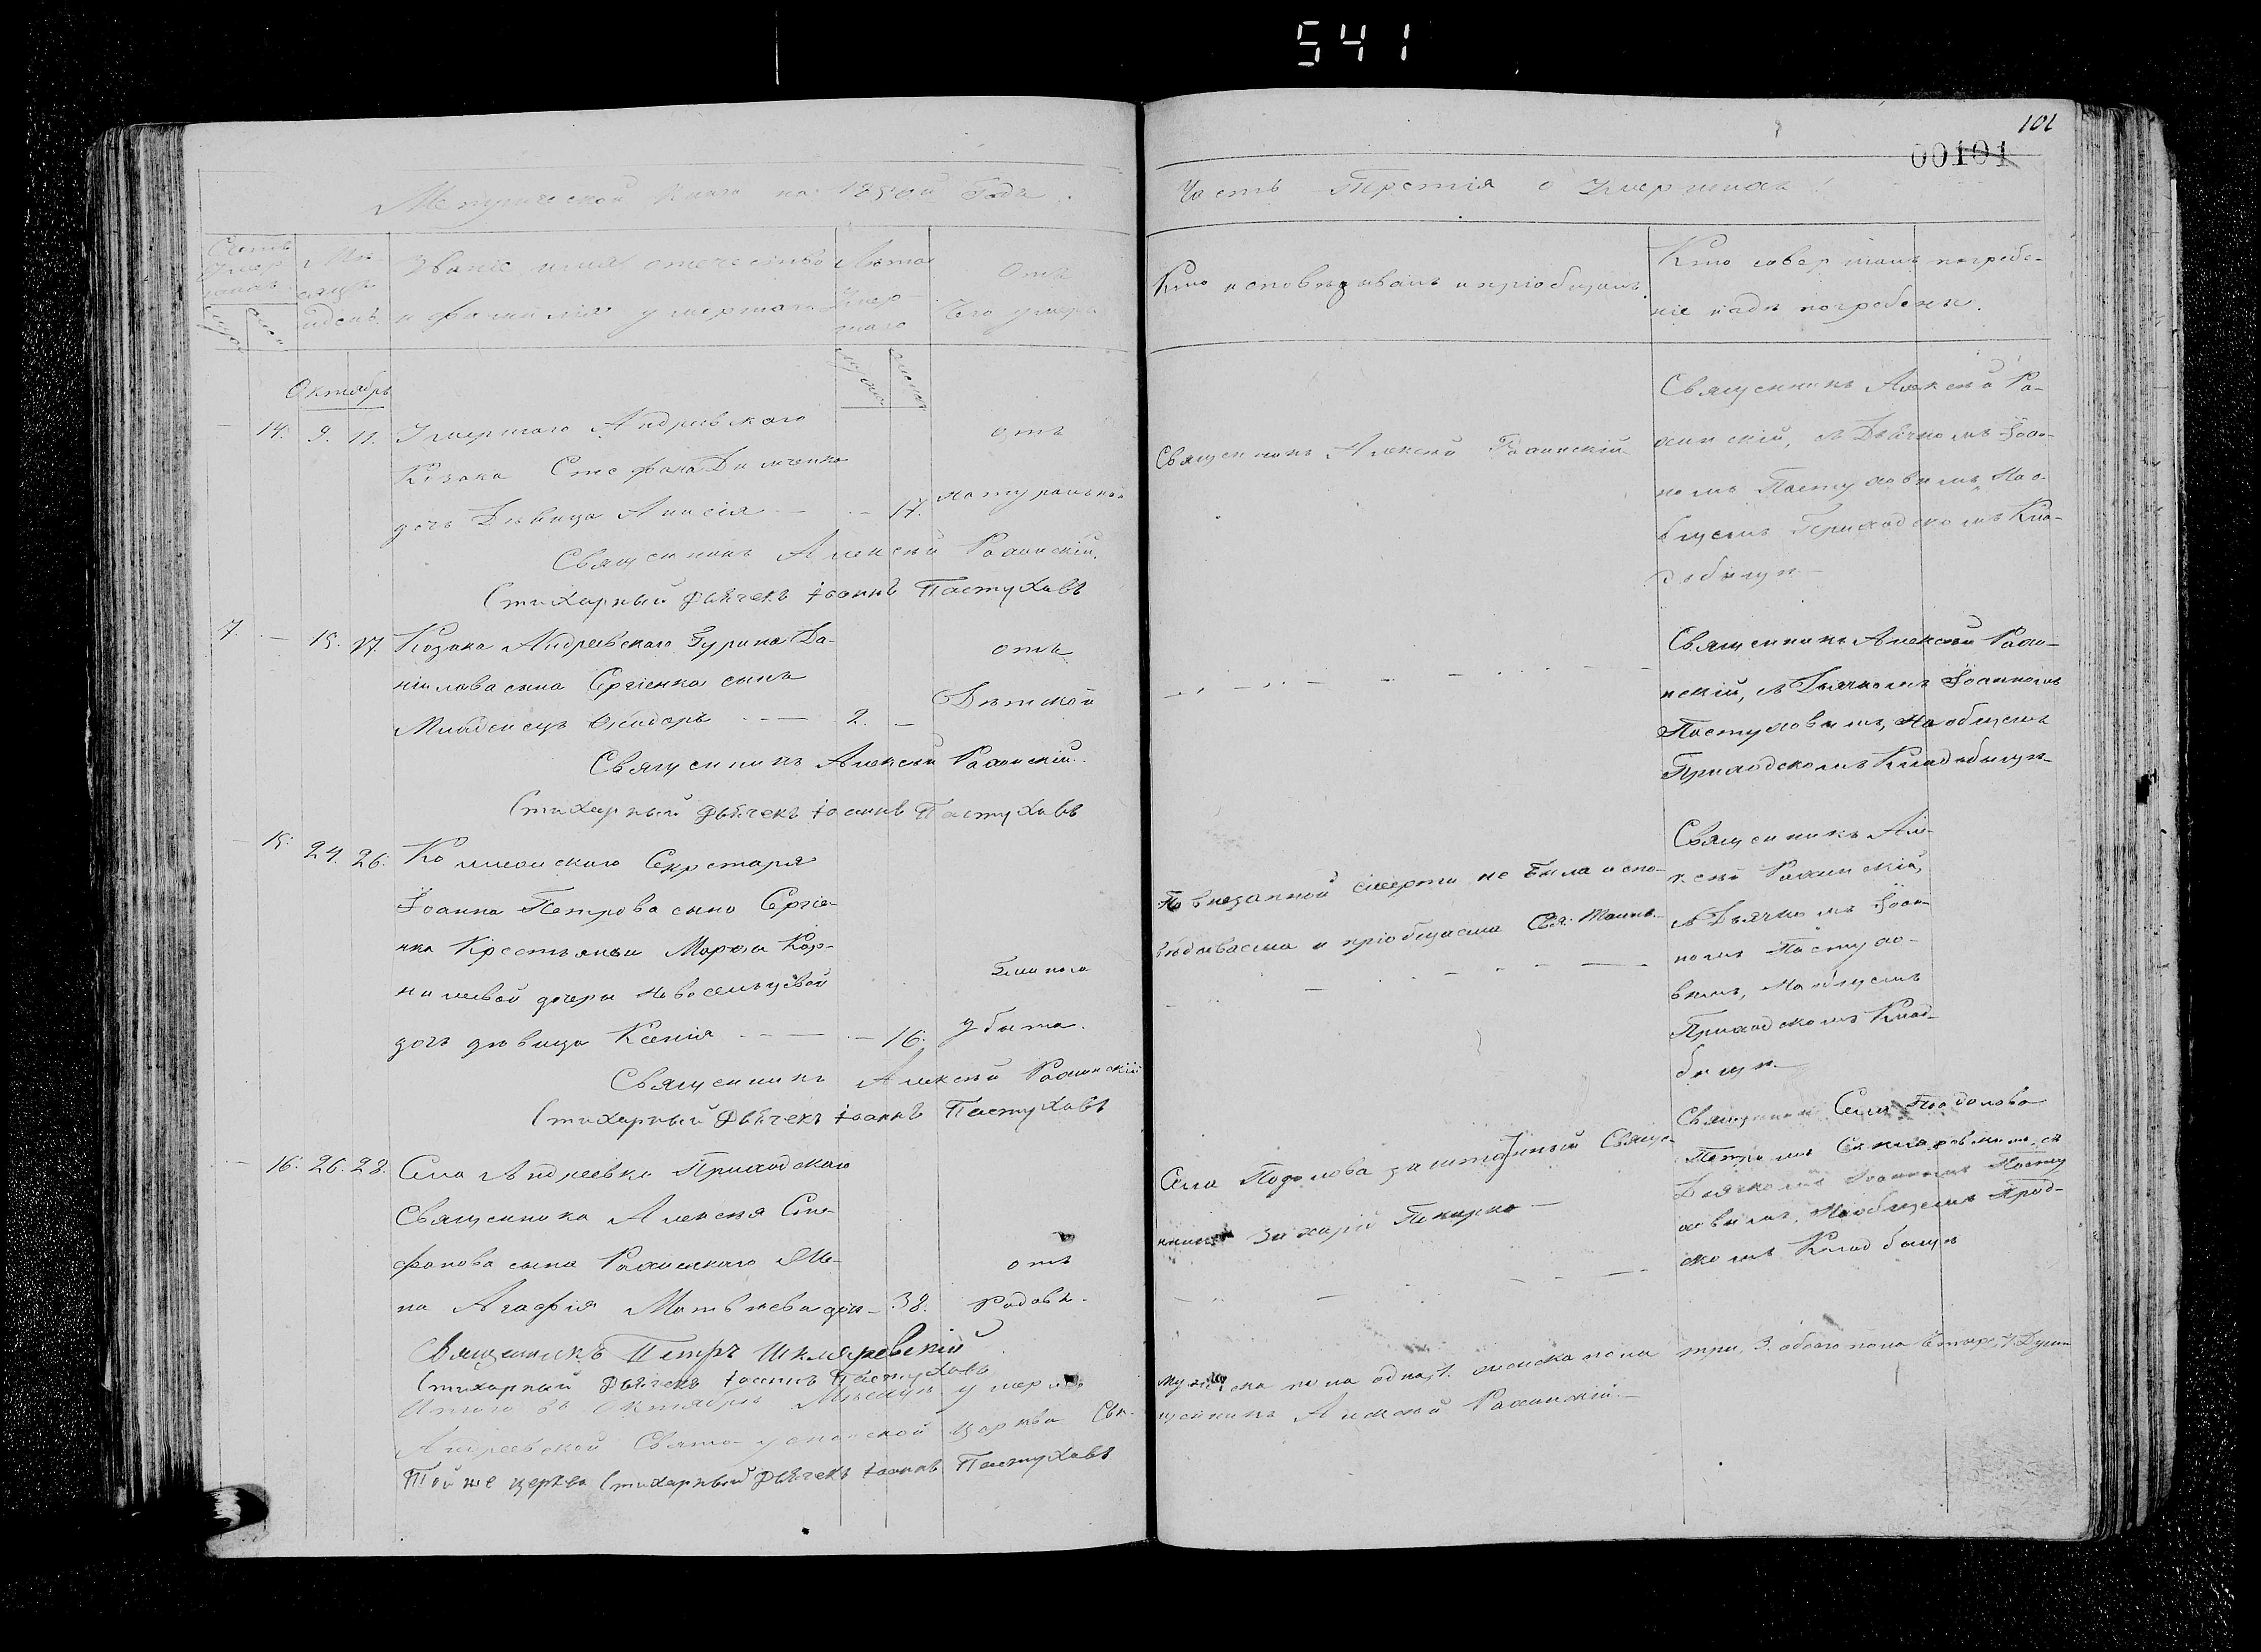 541
101
00101
Метрической книги на 1850й Годъ.
Часть Третія о Умершихъ
Счетъ умершихъ
Мѣсяцъ и день
Званіе, имя, отечество
и фамилія умершаго
Лѣта Умершаго
Отъ
Чего умеръ
Кто исповѣдывалъ и пріобщалъ.
Кто совершалъ погребе-
ніе и гдѣ погребены.
Октябрь
14. 9. 11. Умершаго Андреевскаго
Козака Стефана
дочь Дѣвица Анисія — 17.
отъ
натуральной
Священникъ Алексѣй
Стихарный Дьячекъ Іоаннъ Пастуховъ
Священникъ Алексѣй
Священникъ Алексѣй
съ Дьячкомъ Іоан-
номъ Пастуховымъ, На о-
бщемъ Приходскомъ Кла-
дбищѣ
7. — 15. 17. Козака Андреевскаго Гурина Да-
нилова сына Сергіенка сынъ
Младенецъ — 2. —
отъ
Дѣтской
Священникъ Алексѣй
Стихарный Дьячекъ Іоаннъ Пастуховъ
Священникъ Алексѣй
съ Дьячкомъ Іоанномъ
Пастуховымъ, На общемъ
Приходскомъ Кладбищѣ
15. 24. 26. Секретаря
Іоанна Петрова сына Сергіе-
нка Крестьянки Марѳы Кор-
ниліевой дочери
дочь дѣвица Ксенія — 16.
убита.
Священникъ Алексѣй
Стихарный Дьячекъ Іоаннъ Пастуховъ
По внезапной смерти не была испо-
вѣдываема и пріобщаема Свя. Таинъ.
Священникъ Але-
ксѣй
съ Дьячкомъ Іоан-
номъ Пастухо-
вымъ, На общемъ
Приходскомъ Клад-
бищѣ
16. 26. 28. Села Андреевки Приходскаго
Священника Алексѣя Сте-
фанова сына Же-
на Агафія Матвѣева дочь — 38.
отъ
Родовъ.
Священникъ Петръ Шкляревскій
Стихарный Дьячекъ Іоаннъ Пастуховъ
Села Подолова заштатный Свяще-
нникъ Захарій
Священникъ Села Подолова
Петромъ съ
Дьячкомъ Іоанномъ Пасту
ховымъ, На общемъ
скомъ Кладбищѣ
Итого въ Октябрѣ Мѣсяцѣ умерло мужеска пола одна, 1. женска пола три, 3. обоего пола четыре, 4. Души
Андреевской Свято-успенской церкви Свя-щенникъ Алексѣй
Той же церкви Стихарный Дьячекъ Іоаннъ Пастуховъ